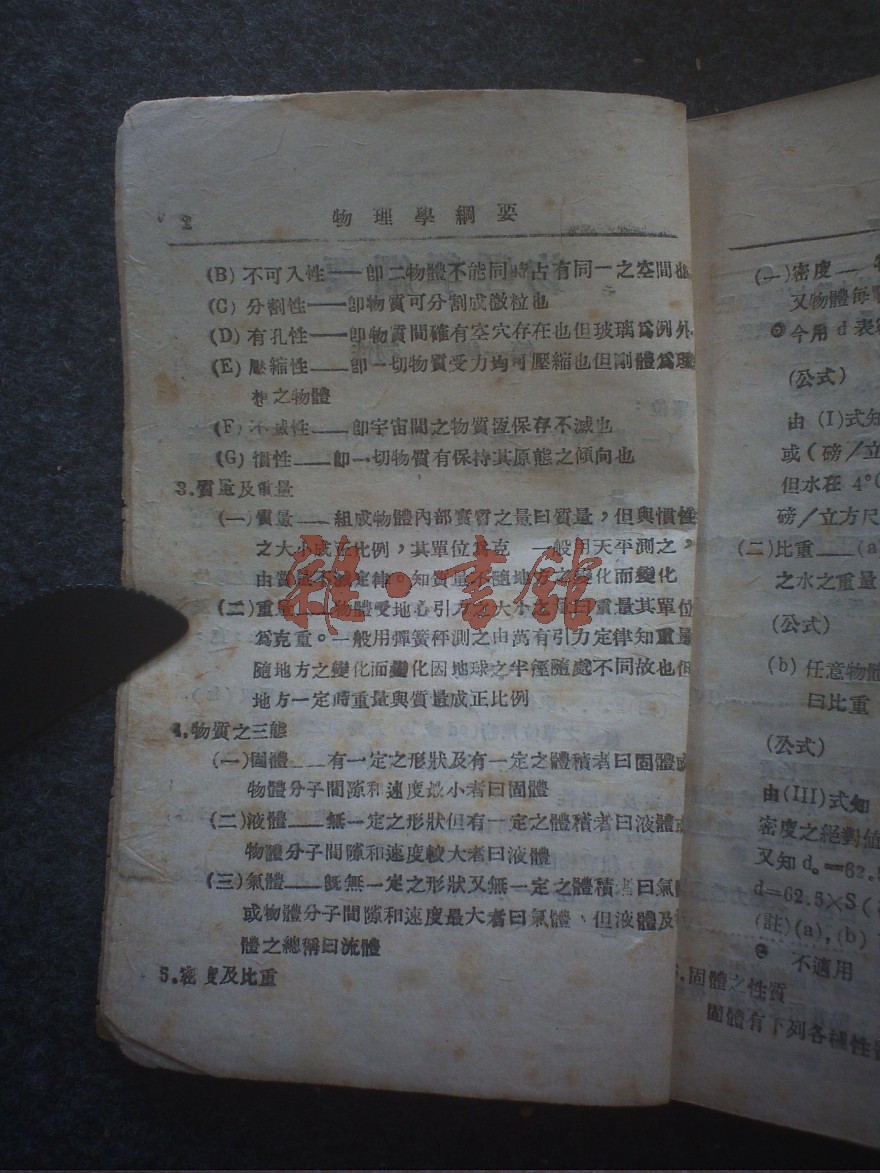 2
物理學綱要
(B) 不可入性——卽二物體不能同時占有同一之空間也
(C) 分割性——卽物質可分割成微粒也
(D) 有孔性——卽物質間確有空穴存在也但玻璃爲例外
(E) 壓縮性——卽一切物質受力均可壓縮也但剛體爲理
想之物體
(F) 不滅性——卽宇宙間之物質恆保存不滅也
(G) 慣性——卽一切物質有保持其原態之傾向也
3.質量及重量
(一)質量——組成物體內部實質之量曰質量，但與慣性
之大小成正比例，其單位爲克 一般用天平測之，
由質量不滅定律。知質量不隨地方之變化而變化
(二)重量——物體受地心引力之大小之量曰重量其單位
爲克重。一般用彈簧秤測之由萬有引力定律知重量
隨地方之變化而變化因地球之半徑隨處不同故也但
地方一定時重量與質量成正比例
4.物質之三態
(一)固體——有一定之形狀及有一定之體積者曰固體或
物體分子間隙和速度最小者曰固體
(二)液體——無一定之形狀但有一定之體積者曰液體或
物體分子間隙和速度較大者曰液體
(三)氣體——旣無一定之形狀又無一定之體積者曰氣體
或物體分子間隙和速度最大者曰氣體、但液體及
體之總稱曰流體
5.密度及比重
雜·書館
(一)密度——
又物體每
今用 d 表
(公式)
由 (I)式知
或(磅/立
但水在 4°C
磅/立方尺
(二)比重——(a)
之水之重量
(公式)
(b) 任意物體
曰比重
(公式)
由(III)式知
密度之絕對值
又知 d。=62.
d=62.5×S(
(註)(a),(b)
不適用
6.固體之性質
固體有下列各種性